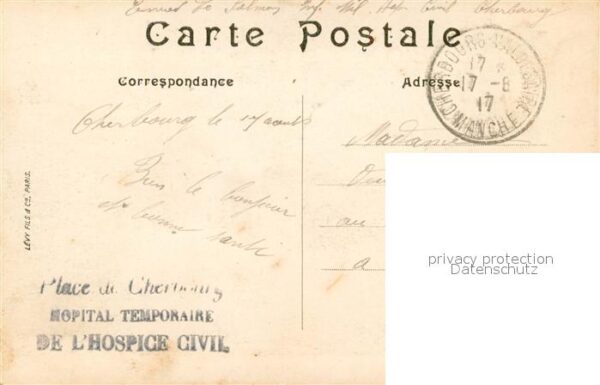 Hop. Civil Cherbourg
Carte Postale
Correspondance
Adresse
CHERBOURG
17
17 - 8
17
MANCHE
Cherbourg le 17 août
Madame
Bien le bonjour
et bonne santé
au
a
LÉVY FILS & CIE, PARIS.
privacy protection
Datenschutz
Place de Cherbourg
HOPITAL TEMPORAIRE
DE L'HOSPICE CIVIL